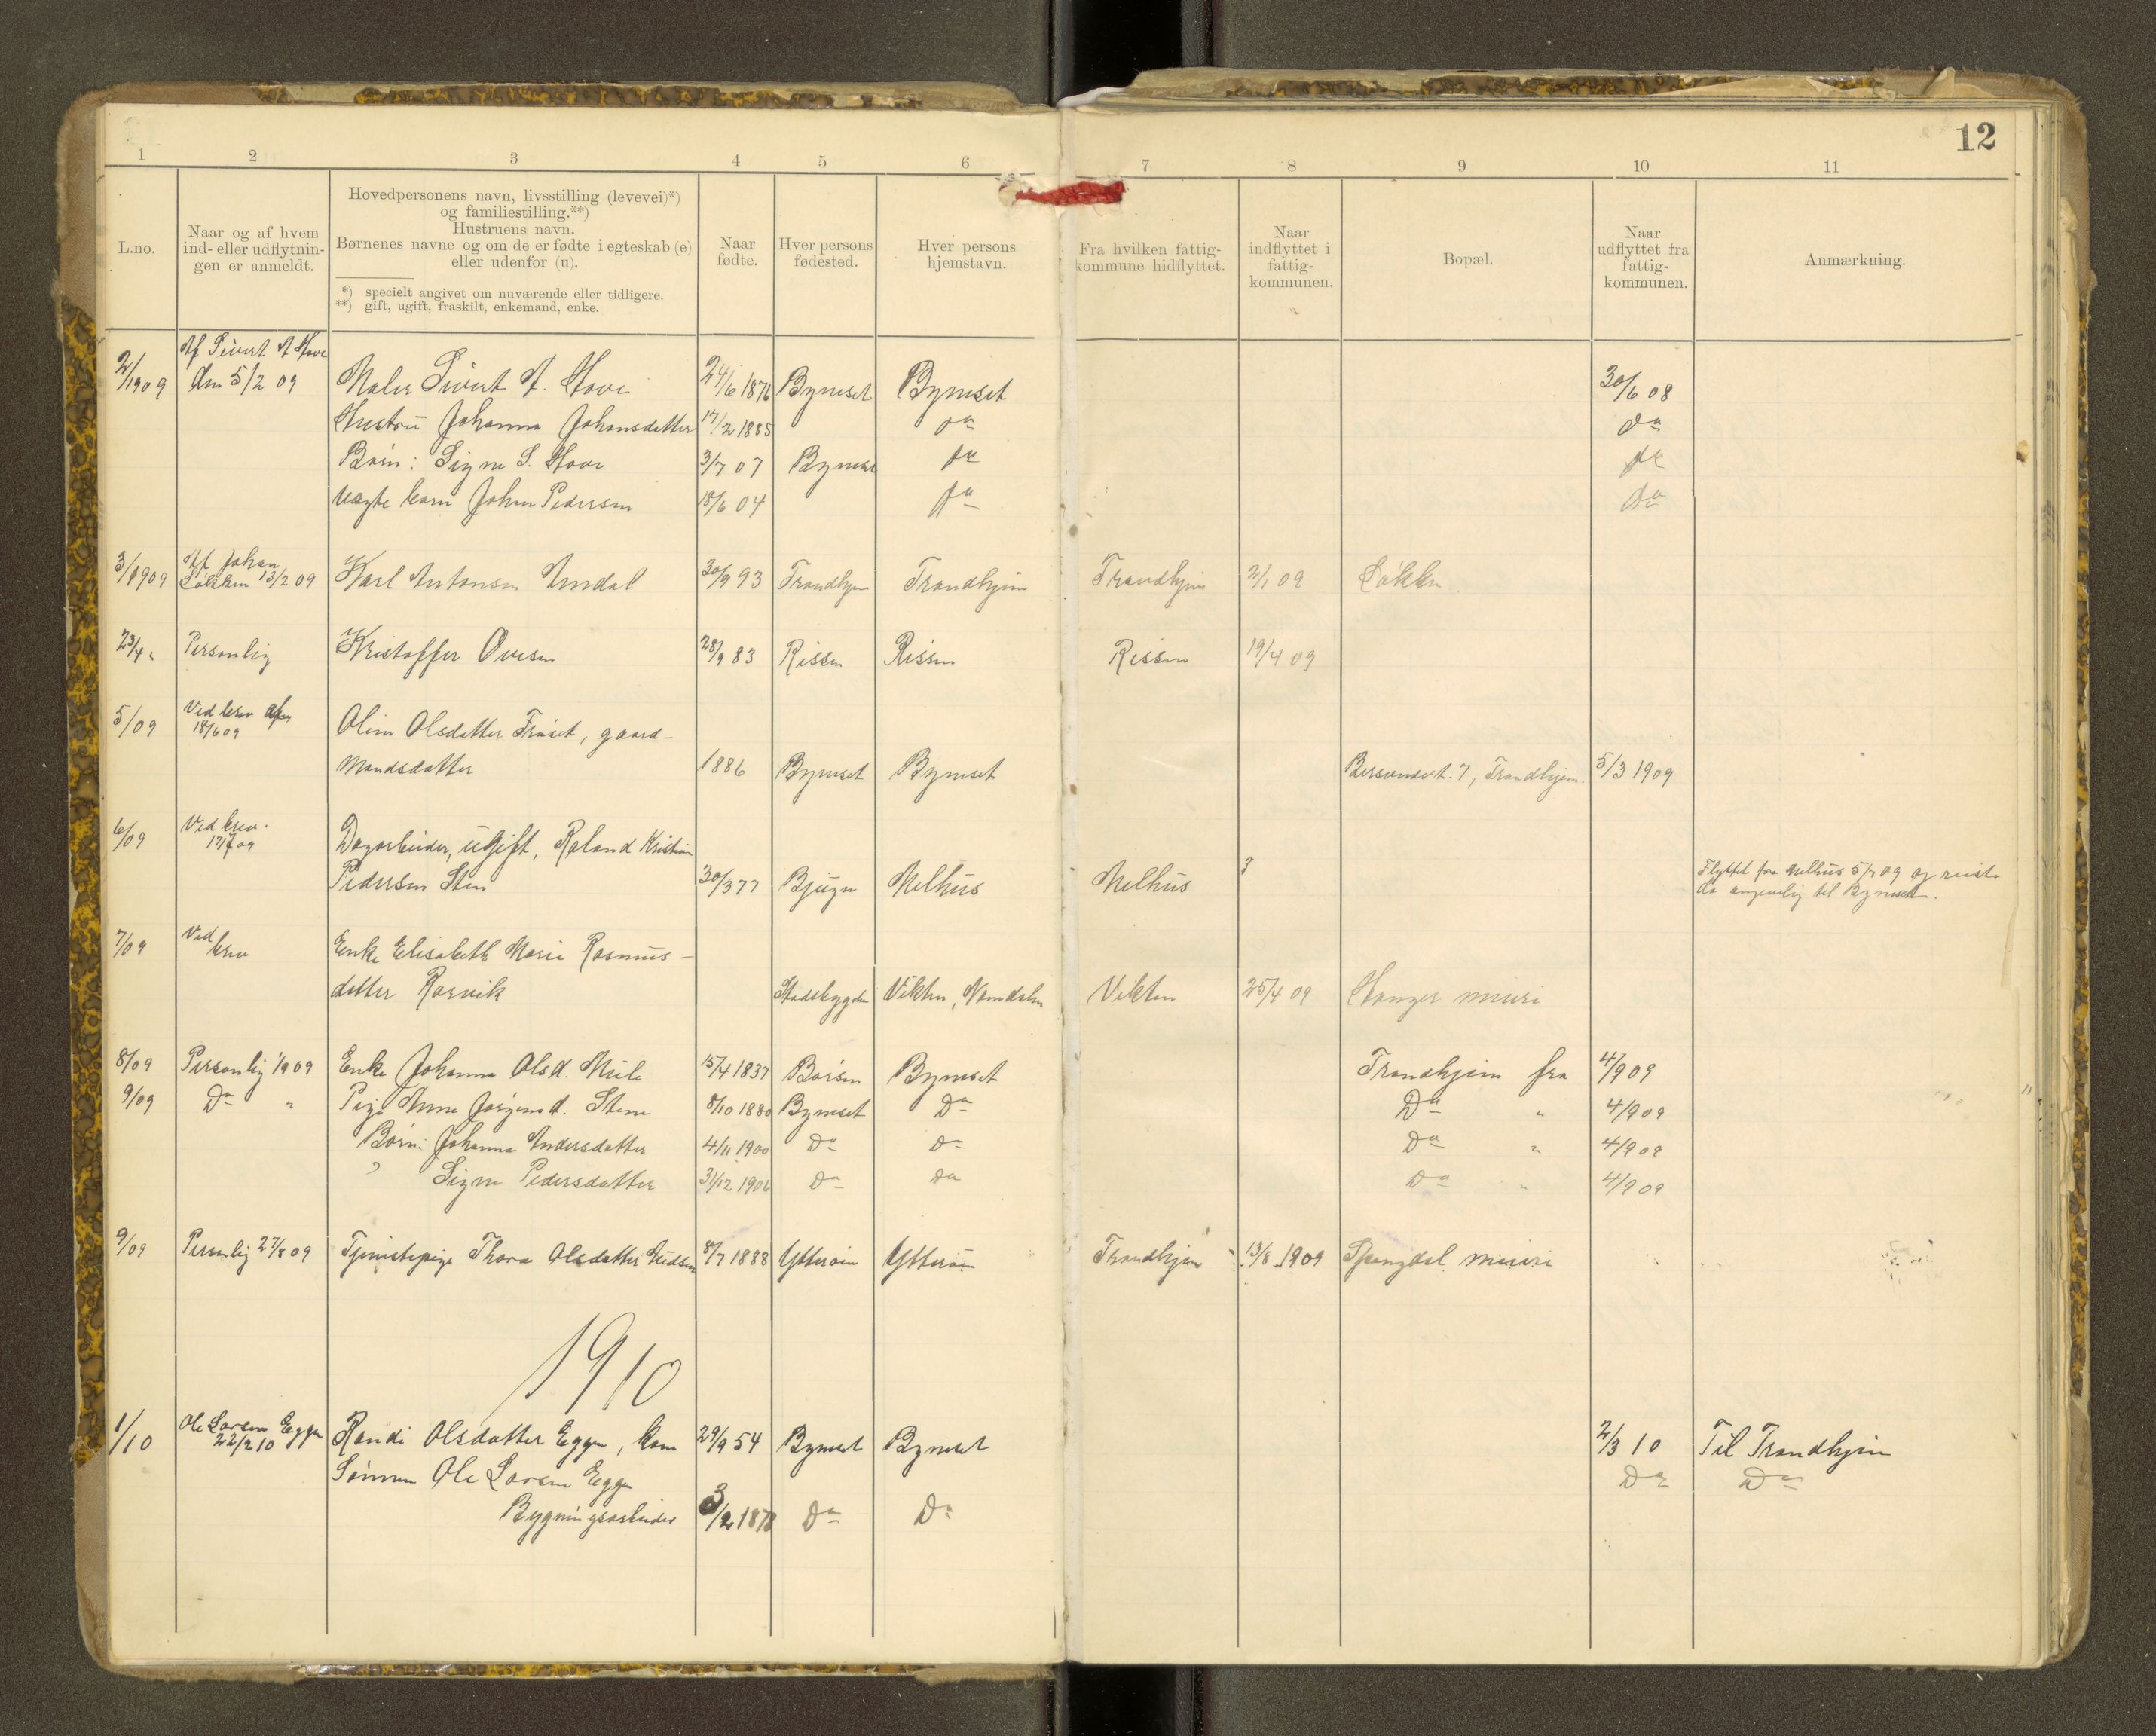 12
1 2 3 4 5 6 7 8 9 10 11
L.no.
Naar og af hvem
ind- eller udflytnin-
gen er anmeldt.
Hovedpersonens navn, livsstilling (levevei)*)
og familiestilling.**)
Hustruens navn.
Børnenes navne og om de er fødte i egteskab (e)
eller udenfor (u).
*) specielt angivet om nuværende eller tidligere.
**) gift, ugift, fraskilt, enkemand, enke.
Naar
fødte.
Hver persons
fødested.
Hver persons
hjemstavn.
Fra hvilken fattig-
kommune hidflyttet.
Naar
indflyttet i
fattig-
kommunen.
Bopæl.
Naar
udflyttet fra
fattig-
kommunen.
Anmærkning.
Af Sivert A Hove
2/1909 den 5/2 09 Maler Sivert A. Hove 24/6 1876 Bynæset Bynæset 30/6 08
Hustru Johanna Johansdatter 17/2 1885 do do
Børn: Signe S. Hove 3/7 07 Bynæs do do
uægte barn Johan Pedersen 18/6 04 do do
3/1909 Af Johan
Løkken 13/2 09 Karl Antonsen 30/9 93 Trondhjem Trondhjem Trondhjem 2/1 09 Løkken
23/4 " Personlig Kristoffer Ovesen 28/9 83 Rissen Rissen Rissen 19/4 09
5/09 Ved brev
18/6 09 Oline Olsdatter Frøset, gaard-
mandsdatter 1886 Bynæset Bynæset 7, Trondhjem. 5/3 1909
6/09 Ved brev
17/7 09 Dagarbeider, ugift, Roland Kristian
Pedersen Sten 30/3 77 Bjugn Melhus Melhus ? Flyttet fra Melhus 5/7 09 og reiste
da angivelig til Bynæset.
7/09 Ved
brev Enke Elisabeth Marie Rasmus-
datter Rørvik Stadsbygden Vikten, Namdalen Vikten 25/4 09 Hanger mindre
8/09 Personlig 1/9 09 Enke Johanna Olsd. Mule 15/4 1837 Børsen Bynæset Trondhjem fra 4/9 09
9/09 Do " Pige Anne Jørgensd. Stene 8/10 1880 Bynæset Do Do " 4/9 09
Børn: Johanna Andersdatter 4/11 1900 Do Do Do " 4/9 09
" Signe Pedersdatter 31/12 1906 Do Do Do " 4/9 09
9/09 Personlig 27/8 09 Tjenestepige Thora Olsdatter 8/7 1888 Ytterøen Ytterøen Trondhjem 13/8 1909 Spongdal
1910
1/10 Ole Loren Eggen
22/2 10 Randi Olsdatter Eggen, kone 29/9 54 Bynæset Bynæset 2/3 10 Til Trondhjem
Sønnen Ole Loren Eggen Do Do
Bygningsarbeider 3/2 1878 Do Do